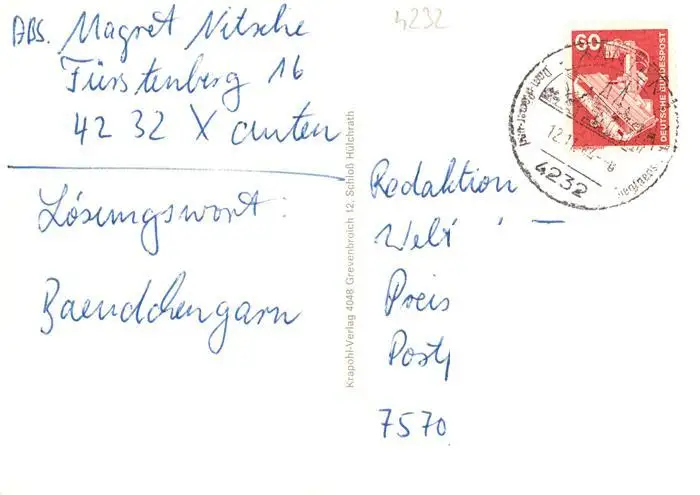 ABS. Magret Nitsche
Fürstenberg 16
4232 Xanten
Lösungswort:
Baendchengarn
4232
Krapohl-Verlag 4048 Grevenbroich 12, Schloß Hülchrath
60
DEUTSCHE BUNDESPOST
4232
Redaktion
Welt
Preis
Post
7570